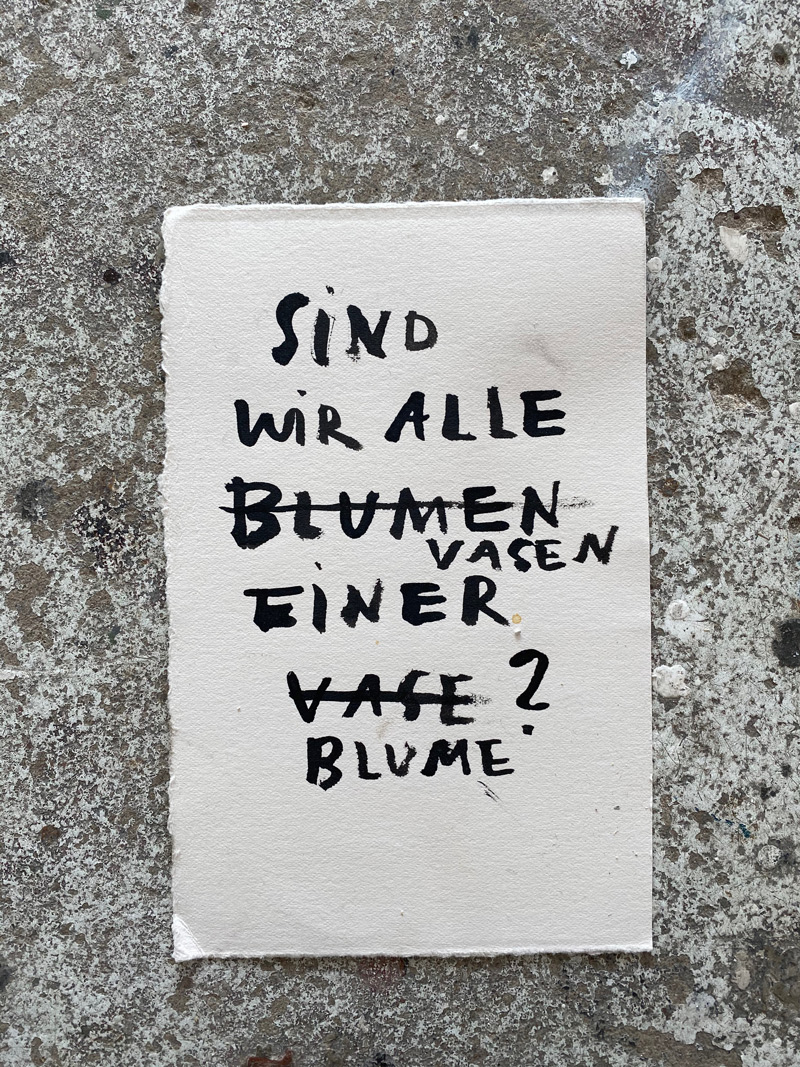 SiND
WiR ALLE
BLUMEN
VASEN
EiNER
VASE ?
BLUME